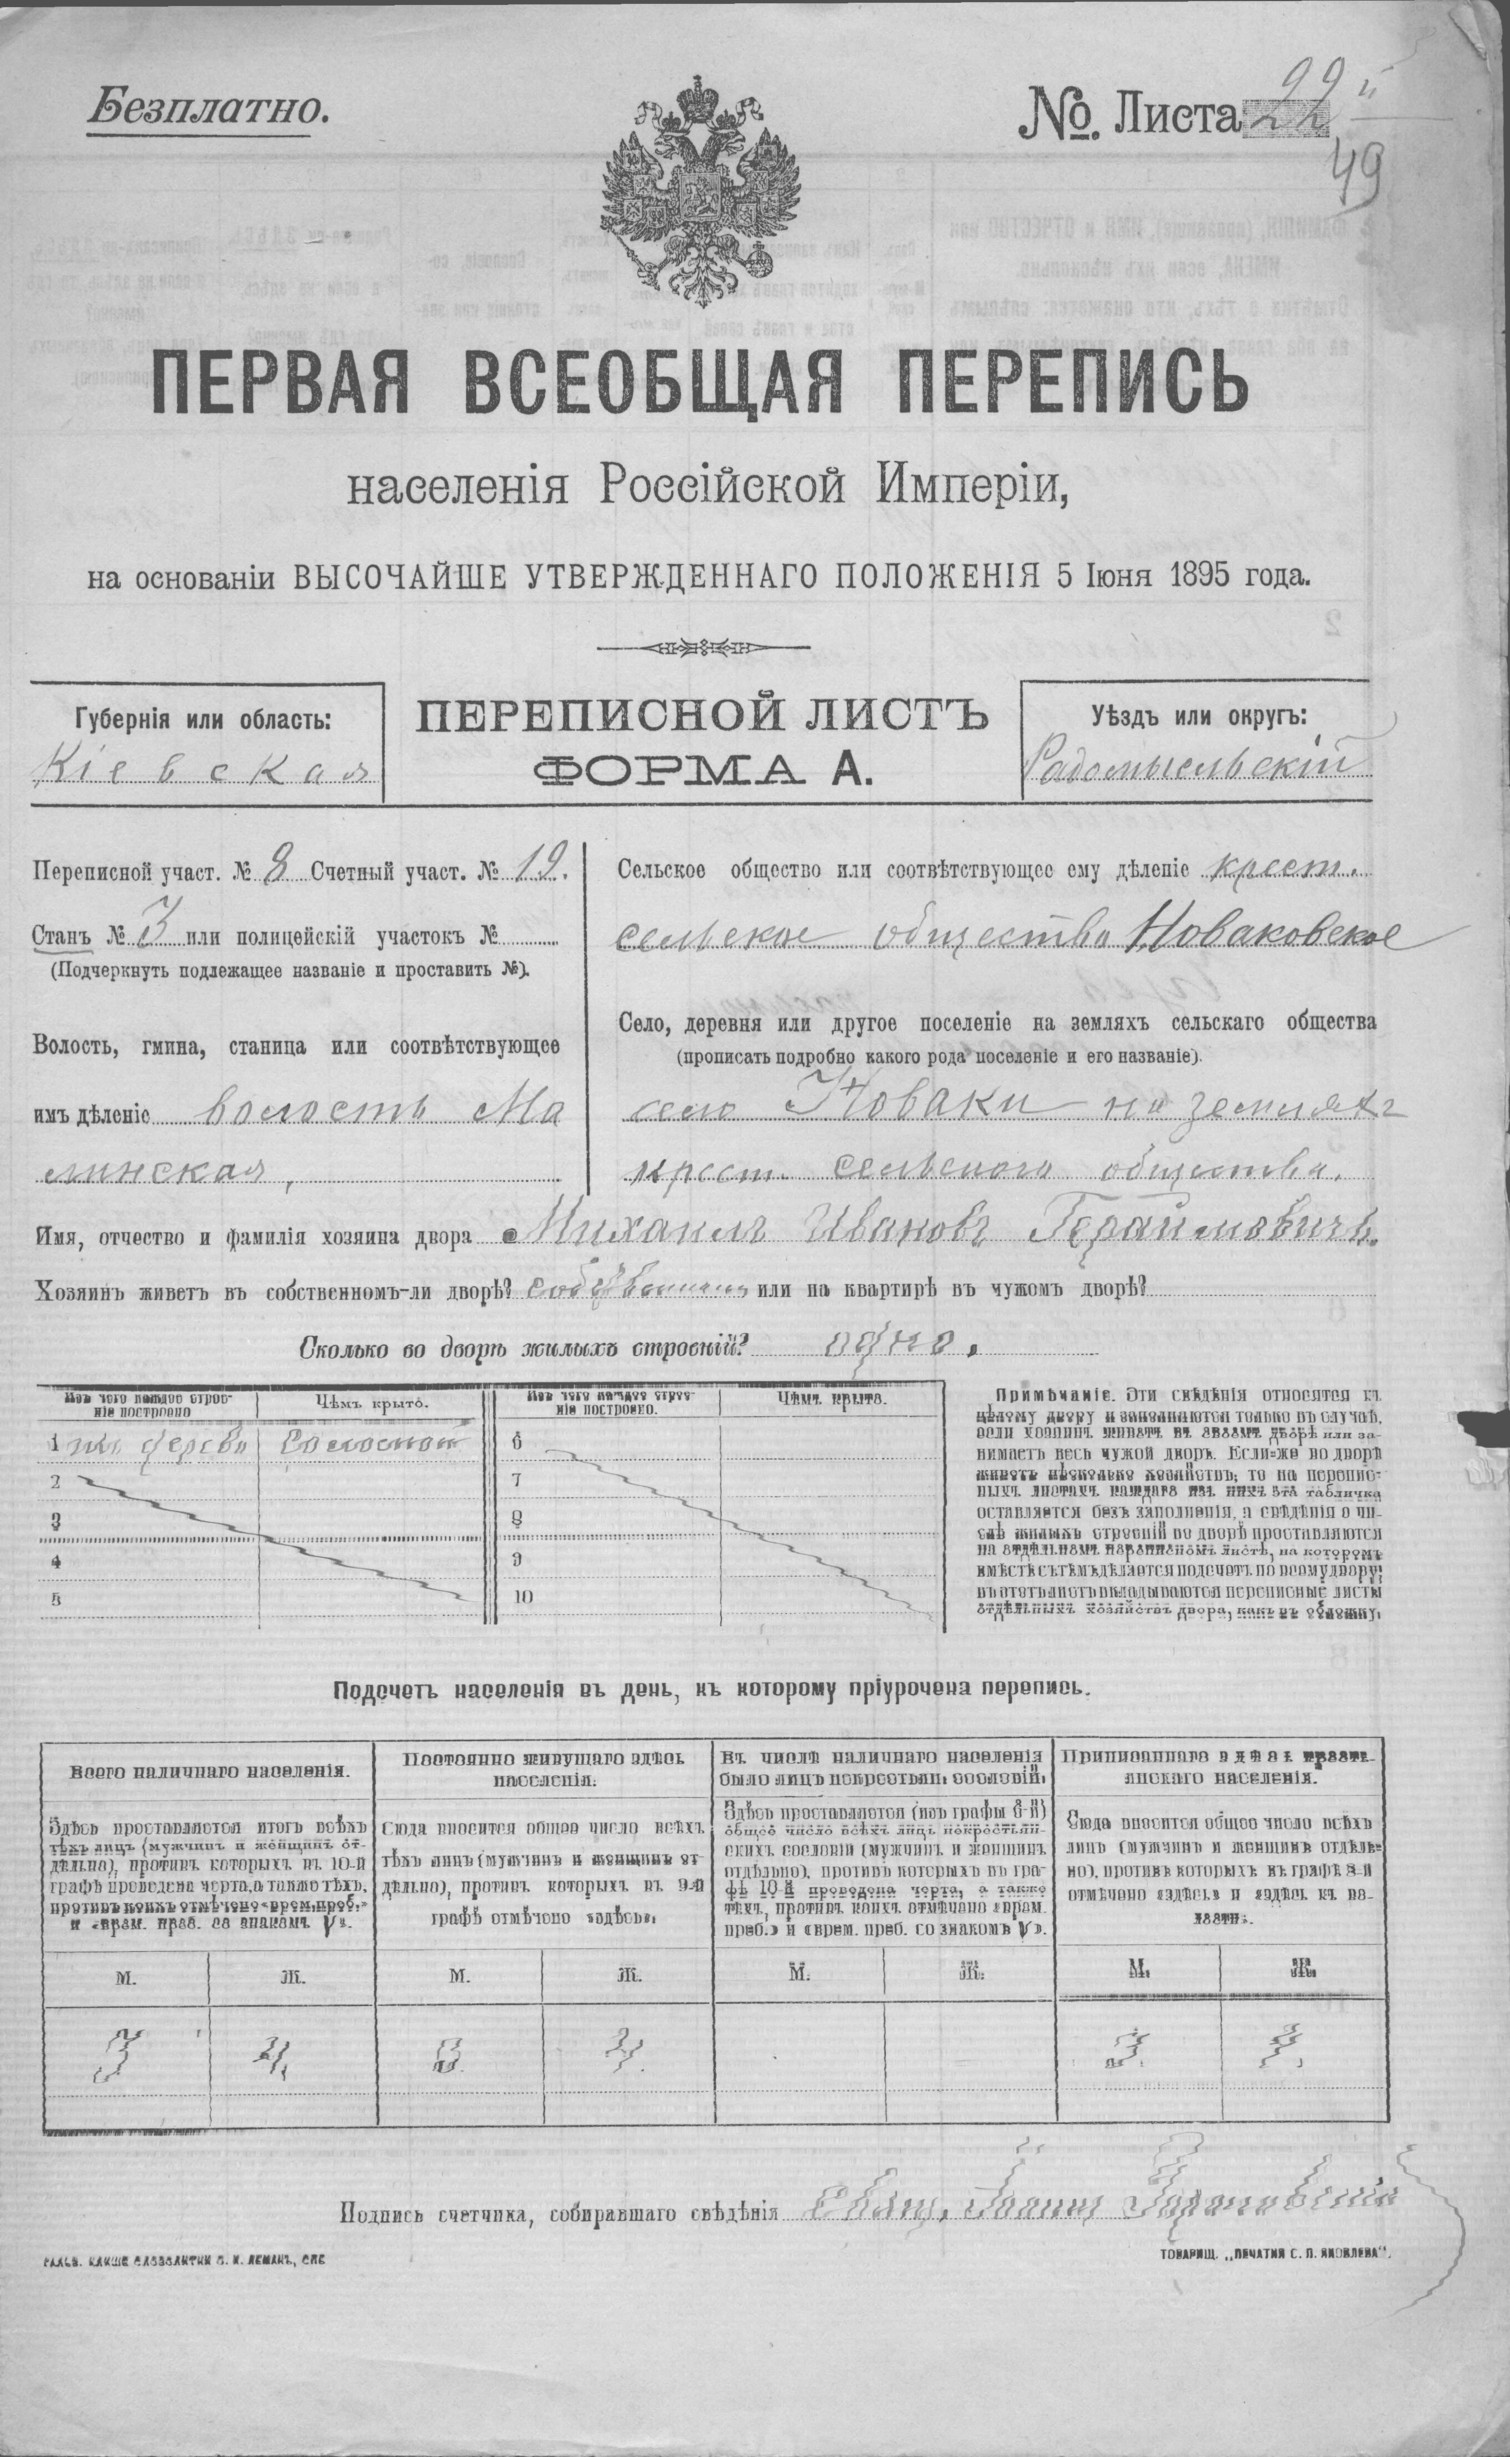 Безплатно.
№. Листа 22
49
ПЕРВАЯ ВСЕОБЩАЯ ПЕРЕПИСЬ
населенія Россійской Имперіи,
на основаніи ВЫСОЧАЙШЕ УТВЕРЖДЕННАГО ПОЛОЖЕНІЯ 5 Іюня 1895 года.
Губернія или область:
Кіевская
ПЕРЕПИСНОЙ ЛИСТЪ
ФОРМА А.
Уѣздъ или округъ:
Радомысльскій
Переписной участ. № 8 Счетный участ. № 19.
Станъ № 3 или полицейскій участокъ №
(Подчеркнуть подлежащее названіе и проставить №).
Волость, гмина, станица или соотвѣтствующее
имъ дѣленіе волость Ма
линская,
Сельское общество или соотвѣтствующее ему дѣленіе крест.
сельское общество Новаковское
Село, деревня или другое поселеніе на земляхъ сельскаго общества
(прописать подробно какого рода поселеніе и его названіе).
село Новаки на земляхъ
крест. сельского общества.
Имя, отчество и фамилія хозяина двора Михаилъ Ивановъ Герасимовичъ.
Хозяинъ живетъ въ собственномъ-ли дворѣ? или на квартирѣ въ чужомъ дворѣ?
Сколько во дворѣ жилыхъ строеній? одно.
Изъ чего каждое строе-
ніе построено
Чѣмъ крыто.
Изъ чего каждое строе-
ніе построено.
Чѣмъ крыто.
1 изъ дерева Соломою
2
3
4
5
6
7
8
9
10
Примѣчаніе. Эти свѣдѣнія относятся къ
цѣлому двору и заполняются только въ случаѣ,
если хозяинъ живетъ въ своемъ дворѣ или за-
нимаетъ весь чужой дворъ. Если-же во дворѣ
живетъ нѣсколько хозяйствъ, то на перепис-
ныхъ листахъ каждаго изъ нихъ эта табличка
оставляется безъ заполненія, а свѣдѣнія о чи-
слѣ жилыхъ строеній во дворѣ проставляются
на отдѣльномъ переписномъ листѣ, на которомъ
вмѣстѣ съ тѣмъ дѣлается подсчетъ по всему двору;
въ этотъ листъ вкладываются переписные листы
отдѣльныхъ хозяйствъ двора, какъ въ обложку.
Подсчетъ населенія въ день, къ которому пріурочена перепись.
Всего наличнаго населенія.
Здѣсь проставляются итогъ всѣхъ
тѣхъ лицъ (мужчинъ и женщинъ от-
дѣльно), противъ которыхъ въ 10-й
графѣ проведена черта, а также тѣхъ,
противъ коихъ отмѣчено «врем. преб.»
и «врем. преб. со знакомъ V».
Постоянно живущаго здѣсь
населенія.
Сюда вносится общее число всѣхъ
тѣхъ лицъ (мужчинъ и женщинъ от-
дѣльно), противъ которыхъ въ 9-й
графѣ отмѣчено «здѣсь».
Въ числѣ наличнаго населенія
было лицъ некрестьян. сословій.
Здѣсь проставляются (изъ графы 6-й)
общее число всѣхъ лицъ некрестьян-
скихъ сословій (мужчинъ и женщинъ
отдѣльно), противъ которыхъ въ гра-
фѣ 10-й проведена черта, а также
тѣхъ, противъ коихъ отмѣчено «врем.
преб.» и «врем. преб. со знакомъ V».
Приписаннаго здѣсь кресть-
янскаго населенія.
Сюда вносится общее число всѣхъ
лицъ (мужчинъ и женщинъ отдѣль-
но), противъ которыхъ въ графѣ 8-й
отмѣчено «здѣсь» и «здѣсь къ во-
лости».
М. Ж. М. Ж. М. Ж. М. Ж.
3 4. 3. 4. 3.
Подпись счетчика, собиравшаго свѣдѣнія Свящ. Іоаннъ
ТОВАРИЩ. „ПЕЧАТНИ С. П. ЯКОВЛЕВА".